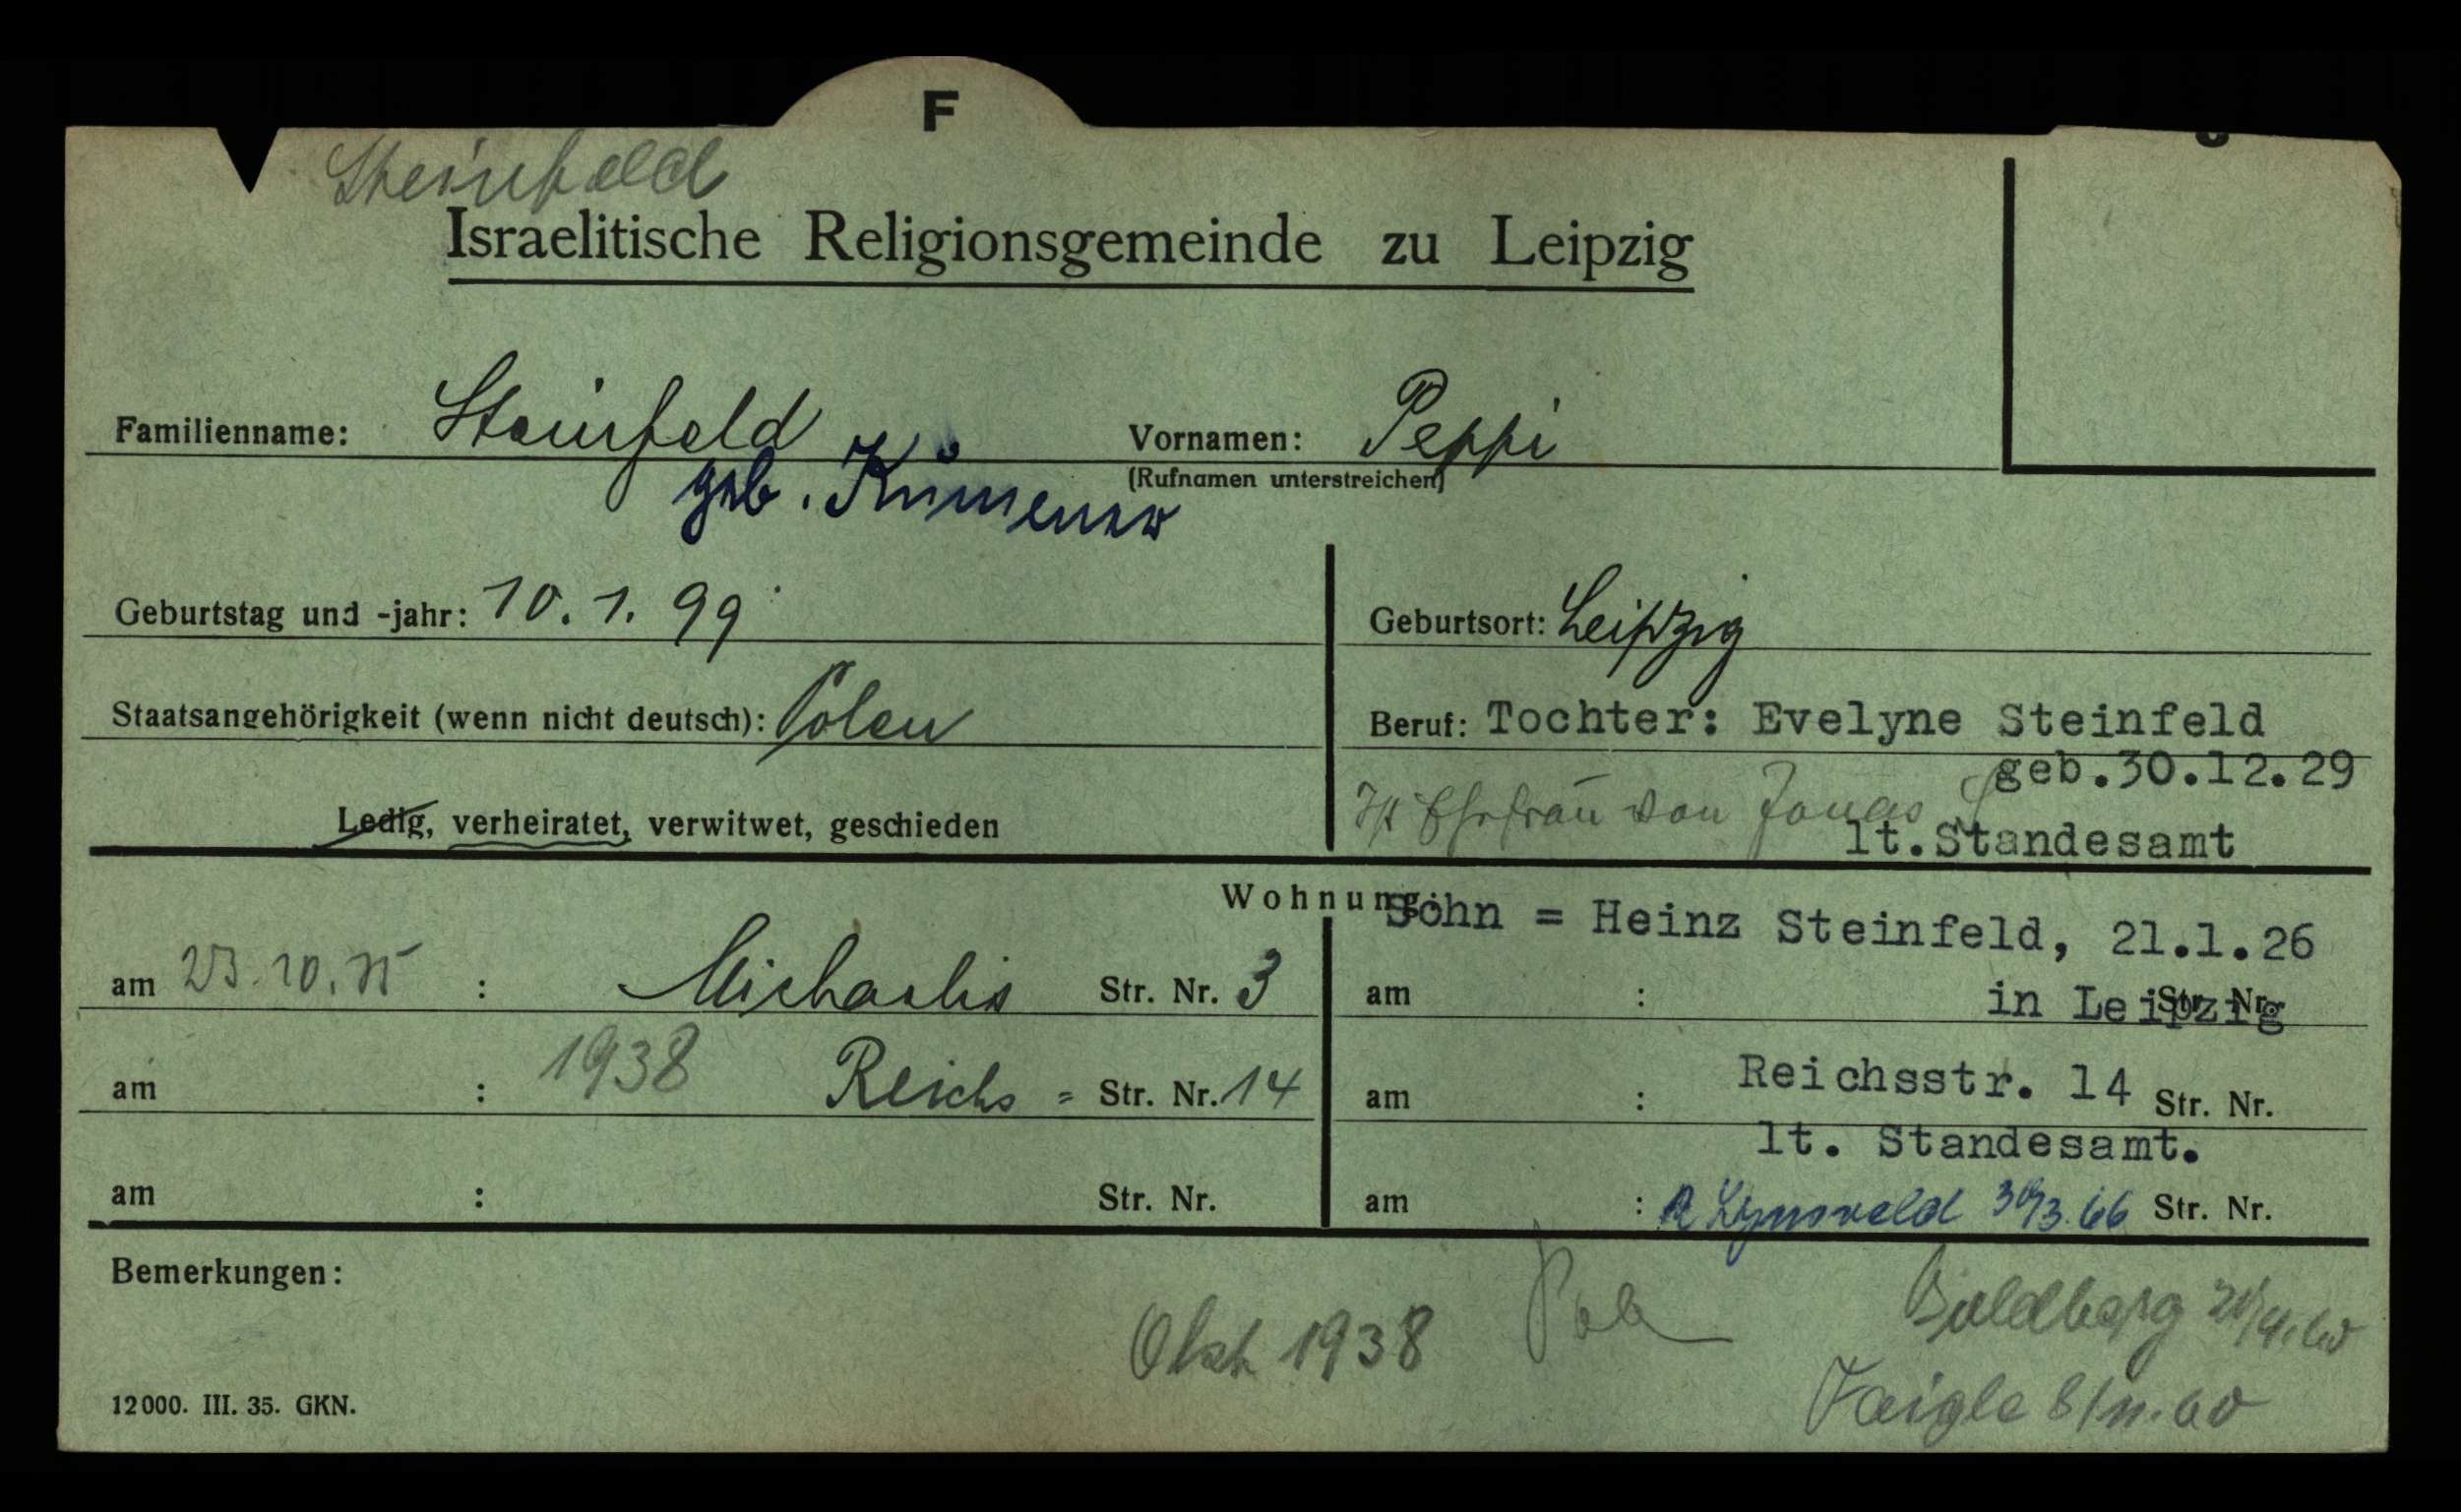 F
Steinfeld
Israelitische Religionsgemeinde zu Leipzig
Familienname: Steinfeld Vornamen: Peppi
(Rufnamen unterstreichen)
geb.
Geburtstag und -jahr: 10. 1. 99 Geburtsort: Leipzig
Staatsangehörigkeit (wenn nicht deutsch): Polen Beruf: Tochter: Evelyne Steinfeld
geb.30.12.29
Ledig, verheiratet, verwitwet, geschieden Ist Ehefrau von Jonas S
lt.Standesamt
Wohnung:
Sohn = Heinz Steinfeld, 21.1.26
am 23.10.35 : Michaelis Str. Nr. 3 am : Str. Nr.
in Leipzig
am : 1938 Reichs = Str. Nr. 14 am : Reichsstr. 14 Str. Nr.
lt. Standesamt.
am : Str. Nr. am : 30/3.66 Str. Nr.
Bemerkungen:
Okt 1938 Pole Goldberg
Faigle 8/11.60
12000. III. 35. GKN.